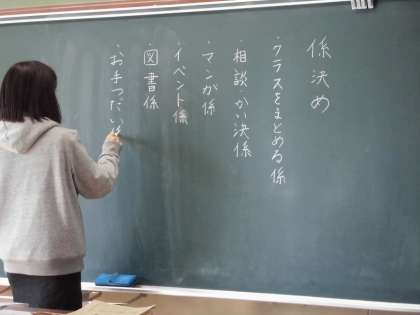 係決め
・クラスをまとめる係
・相談・かい決係
・マンガ係
・イベント係
・図書係
・お手つだい